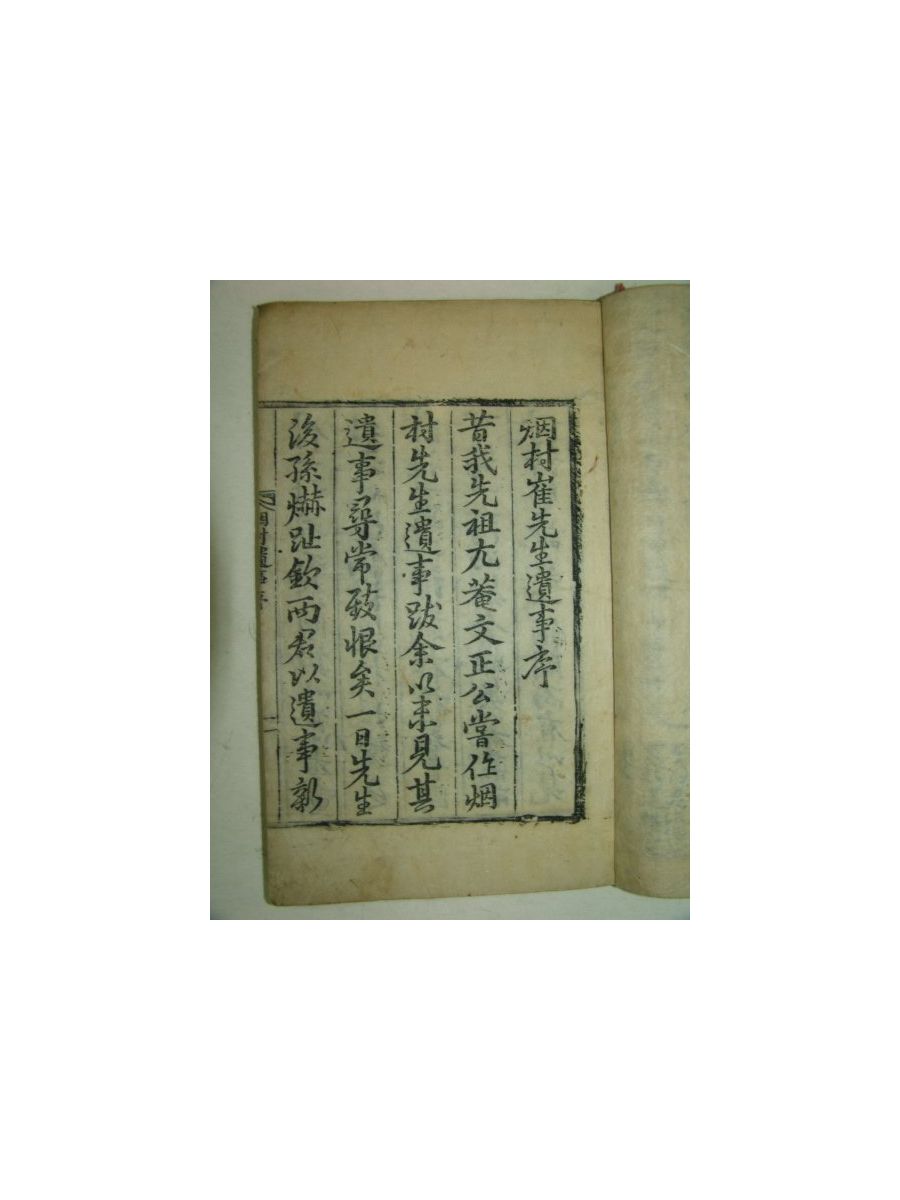 烟村崔先生遺事序
昔我先祖尤菴文正公嘗作烟
村先生遺事跋余以未見其
遺事尋常致恨矣一日先生
後孫爀趾欽兩君以遺事新
烟村遺事序